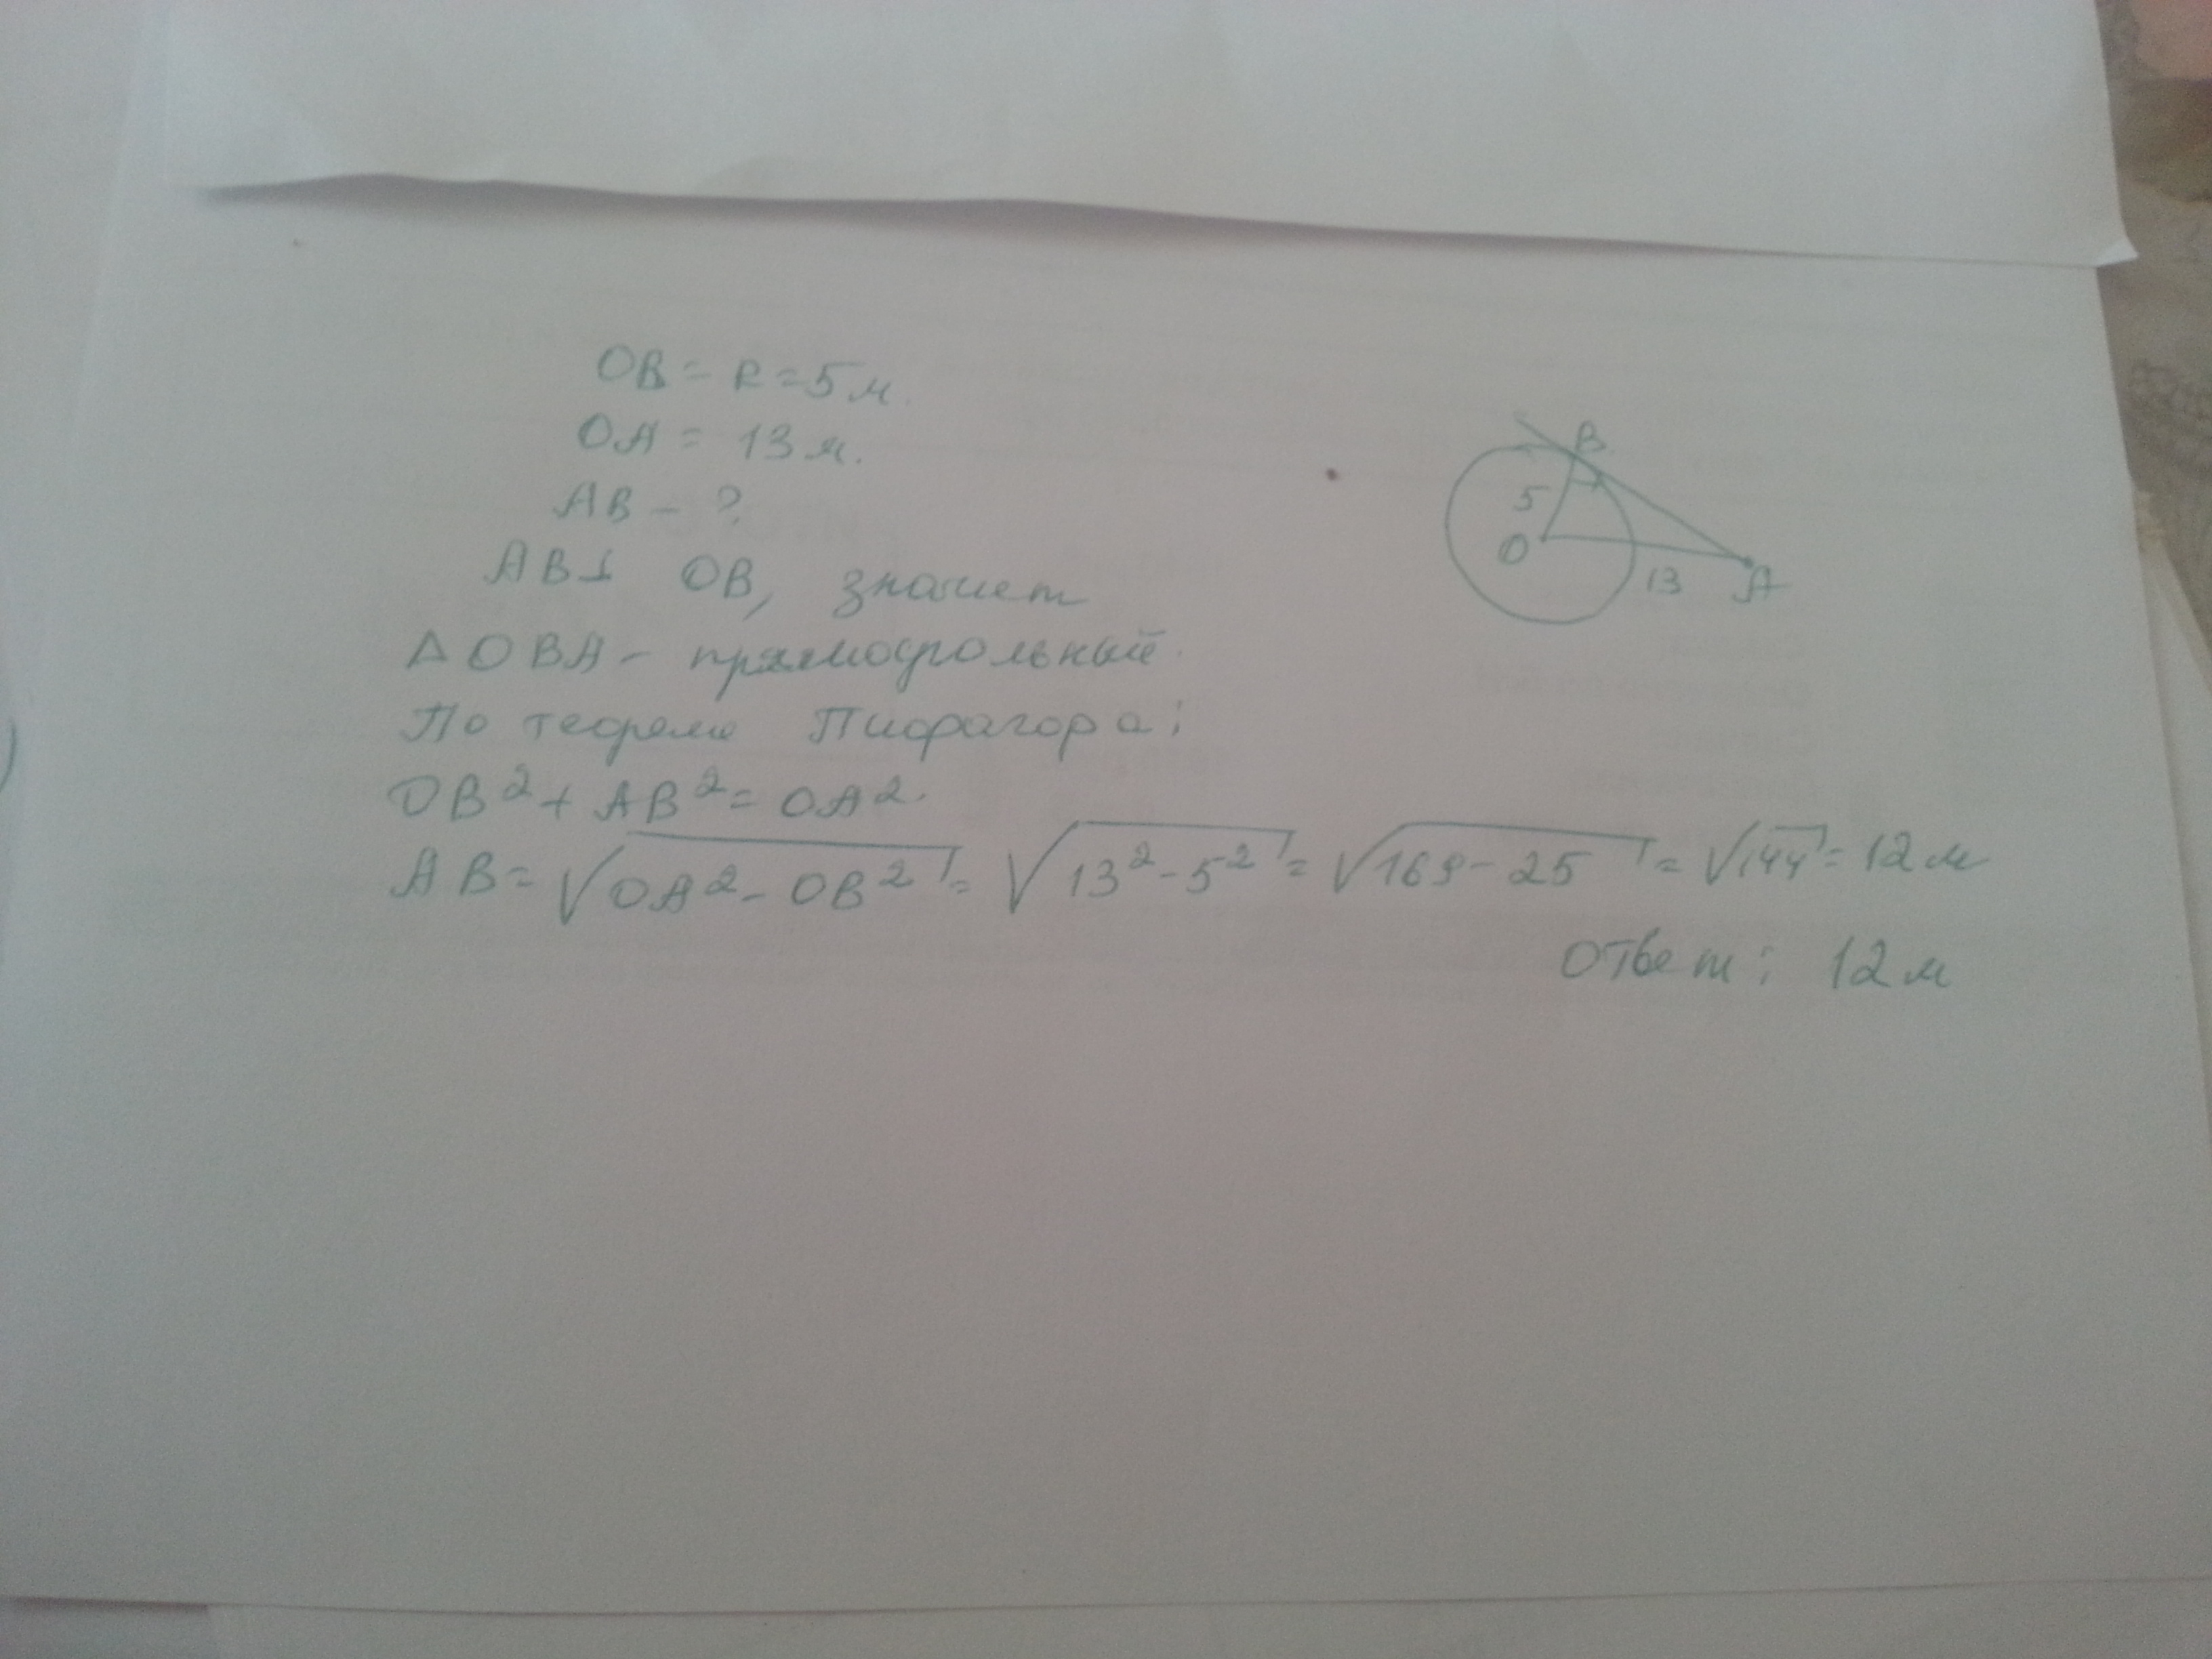 OB = R = 5 м.
OA = 13 м.
AB - ?
AB ⊥ OB, значит
△ OBA - прямоугольный.
По теореме Пифагора:
OB² + AB² = OA².
AB = √(OA² - OB²) = √(13² - 5²) = √(169 - 25) = √144 = 12 м
Ответ: 12 м
B
5
O
13
A